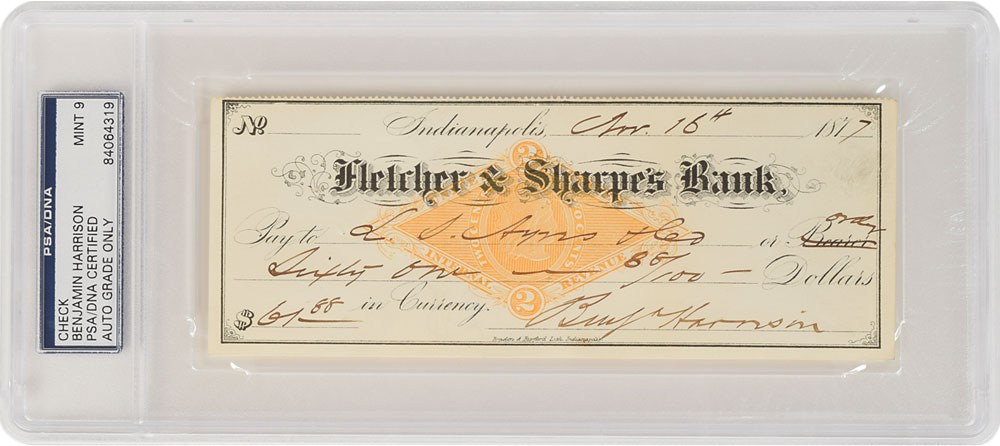 PSA/DNA
CHECK
BENJAMIN HARRISON
PSA/DNA CERTIFIED
AUTO GRADE ONLY
MINT 9
84064319
No Indianapolis, Nov. 16th 1877
Fletcher & Sharpe's Bank,
Pay to L. S. Ayres & Co or Bearer order
Sixty One — 88/100 — Dollars
$61.88 in Currency. Benj Harrison
2
U.S. INTERNAL REVENUE
2
Braden & Burford Lith. Indianapolis